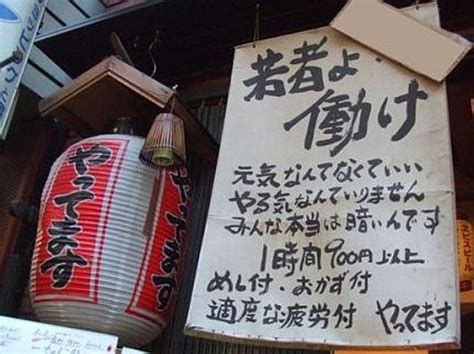 若者よ
働け
元気なんてなくていい
やる気なんていりません
みんな本当は暗いんです
1時間900円以上
めし付・おかず付
適度な疲労付 やってます
やってます
やってます